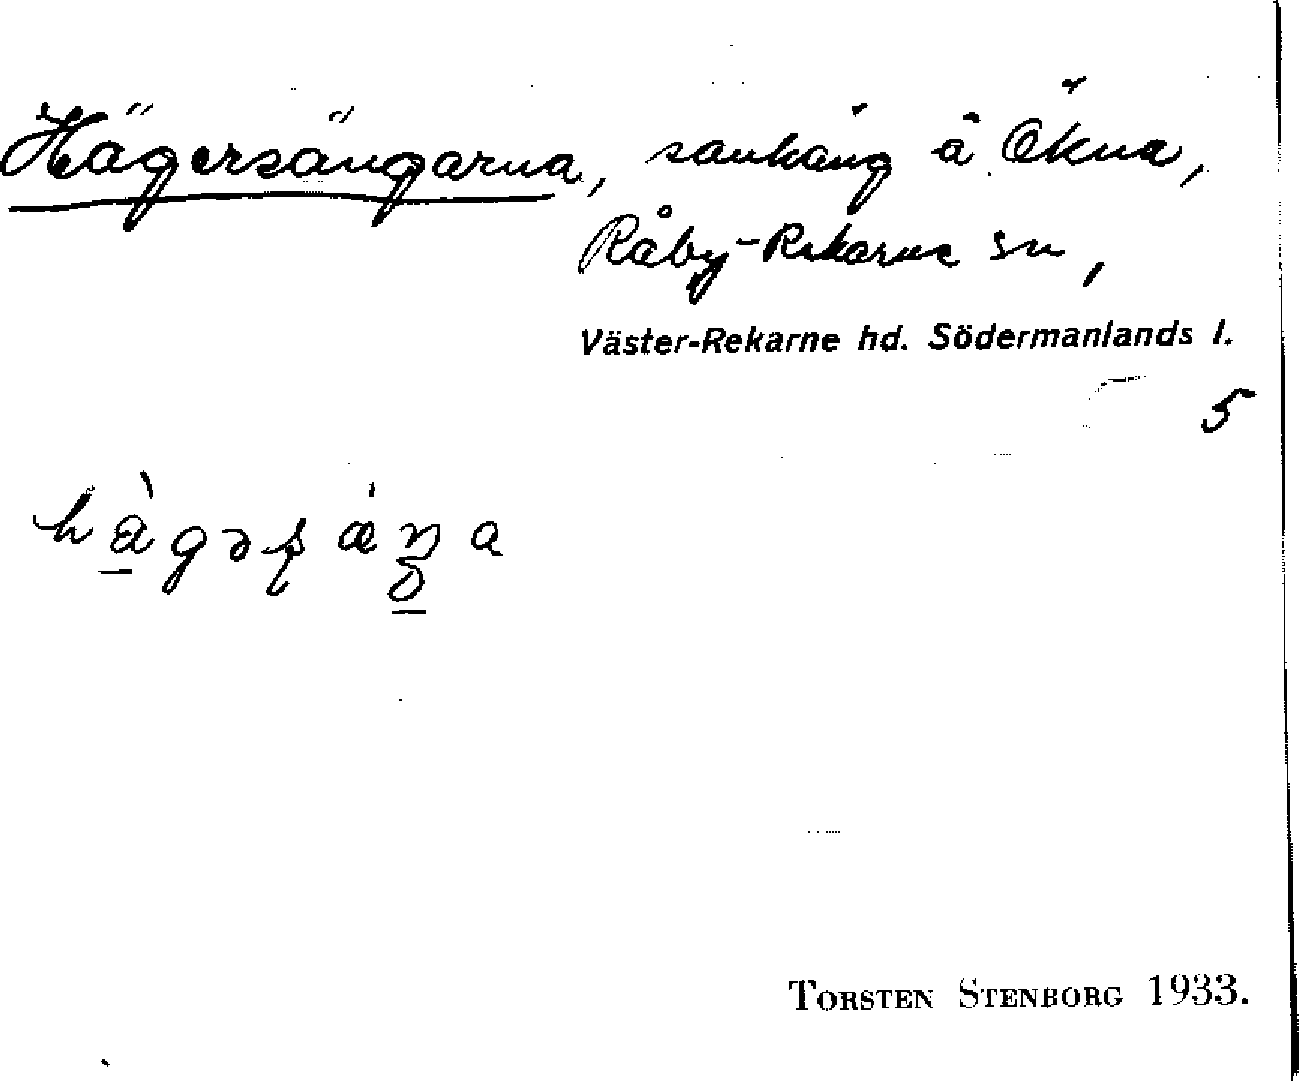 Hägersängarna, sankäng å Ökna,
Råby-Rekarne sn,
Väster-Rekarne hd. Södermanlands l.
5
TORSTEN STENBORG 1933.